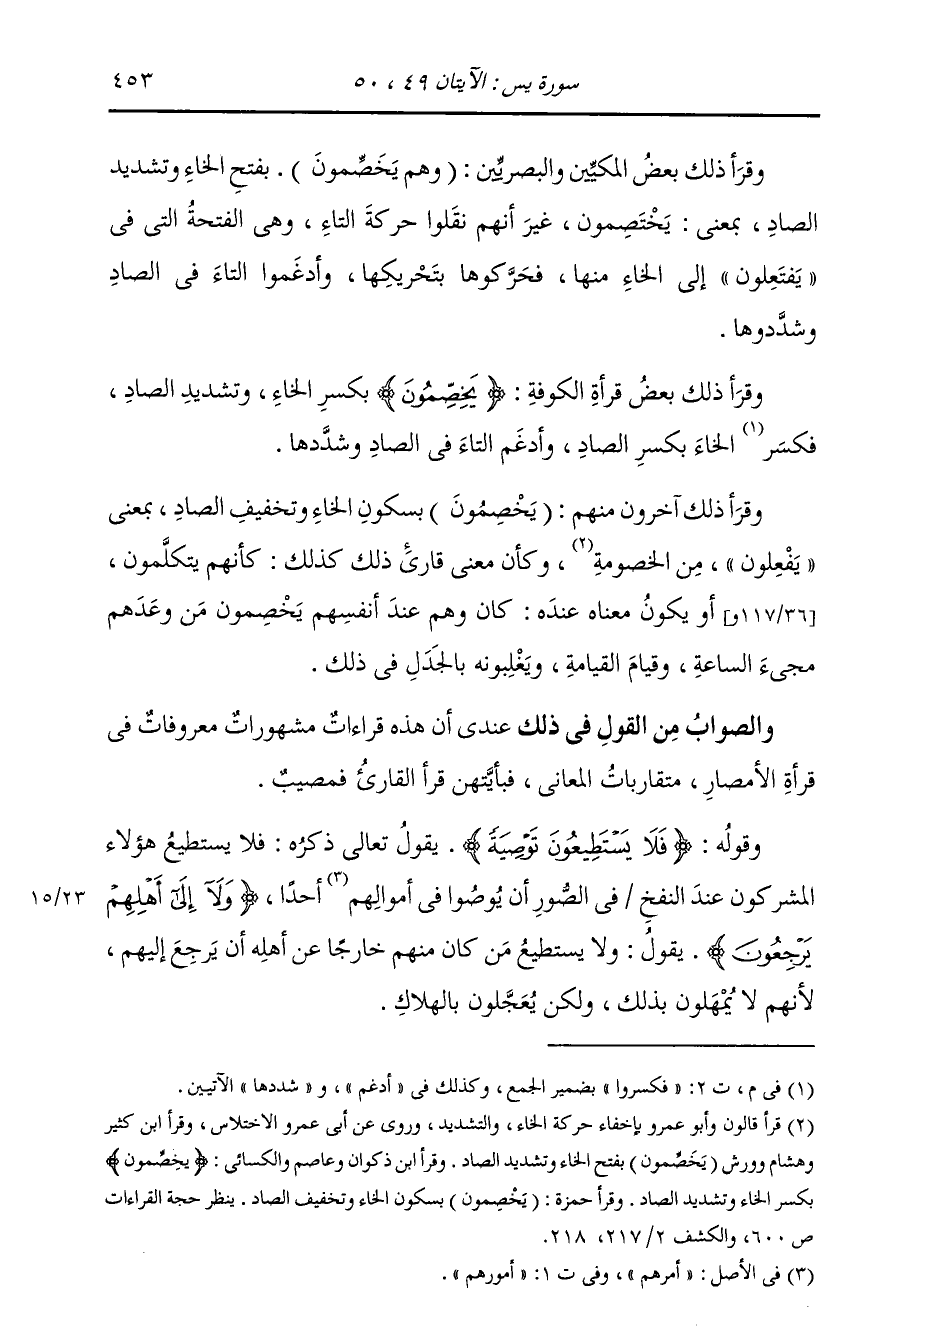 سورة يس : الآيتان ٤٩ ، ٥٠
٤٥٣
وقرَأ ذلك بعضُ المكيِّين والبصريِّين : ( وهم يَخَصِّمونَ ) . بفتحِ الخاءِ وتشديد
الصادِ ، بمعنى : يَخْتَصِمون ، غيرَ أنهم نقَلوا حركةَ التاءِ ، وهى الفتحةُ التى فى
« يَفتَعِلون » إلى الخاءِ منها ، فحَرَّكوها بتَحْريكِها ، وأدغَموا التاءَ فى الصادِ
وشدَّدوها .
وقرَأ ذلك بعضُ قرأةِ الكوفةِ : ﴿ يَخِصِّمُونَ ﴾ بكسرِ الخاءِ ، وتشديدِ الصادِ ،
فكسَر(١) الخاءَ بكسرِ الصادِ ، وأدغَم التاءَ فى الصادِ وشدَّدها .
وقرَأ ذلك آخرون منهم : ( يَخْصِمُونَ ) بسكونِ الخاءِ وتخفيفِ الصادِ ، بمعنى
« يَفْعِلون » ، مِن الخصومةِ(٢) ، وكأن معنى قارئِ ذلك كذلك : كأنهم يتكلَّمون ،
[١١٧/٣٦و] أو يكونُ معناه عندَه : كان وهم عندَ أنفسِهم يَخْصِمون مَن وعَدَهم
مجىءَ الساعةِ ، وقيامَ القيامةِ ، ويَغْلِبونه بالجَدَلِ فى ذلك .
والصوابُ مِن القولِ فى ذلك عندى أن هذه قراءاتٌ مشهوراتٌ معروفاتٌ فى
قرأةِ الأمصارِ ، متقارباتُ المعانى ، فبأيَّتهن قرأ القارئُ فمصيبٌ .
وقولُه : ﴿ فَلَا يَسْتَطِيعُونَ تَوْصِيَةً ﴾ . يقولُ تعالى ذكرُه : فلا يستطيعُ هؤلاء
المشركون عندَ النفخِ / فى الصُّورِ أن يُوصُوا فى أموالِهم(٣) أحدًا ، ﴿ وَلَآ إِلَىٰٓ أَهْلِهِمْ
١٥/٢٣
يَرْجِعُونَ ﴾ . يقولُ : ولا يستطيعُ مَن كان منهم خارجًا عن أهلِه أن يَرجِعَ إليهم ،
لأنهم لا يُمْهَلون بذلك ، ولكن يُعَجَّلون بالهلاكِ .
(١) فى م ، ت ٢: « فكسروا » بضمير الجمع ، وكذلك فى « أدغم » ، و « شددها » الآتيين .
(٢) قرأ قالون وأبو عمرو بإخفاء حركة الخاء ، والتشديد ، وروى عن أبى عمرو الاختلاس ، وقرأ ابن كثير
وهشام وورش ( يَخَصِّمون ) بفتح الخاء وتشديد الصاد . وقرأ ابن ذكوان وعاصم والكسائى : ﴿ يخِصِّمون ﴾
بكسر الخاء وتشديد الصاد . وقرأ حمزة : ( يَخْصِمون ) بسكون الخاء وتخفيف الصاد . ينظر حجة القراءات
ص ٦٠٠، والكشف ٢/ ٢١٧، ٢١٨.
(٣) فى الأصل : « أمرهم » ، وفى ت ١: « أمورهم » .